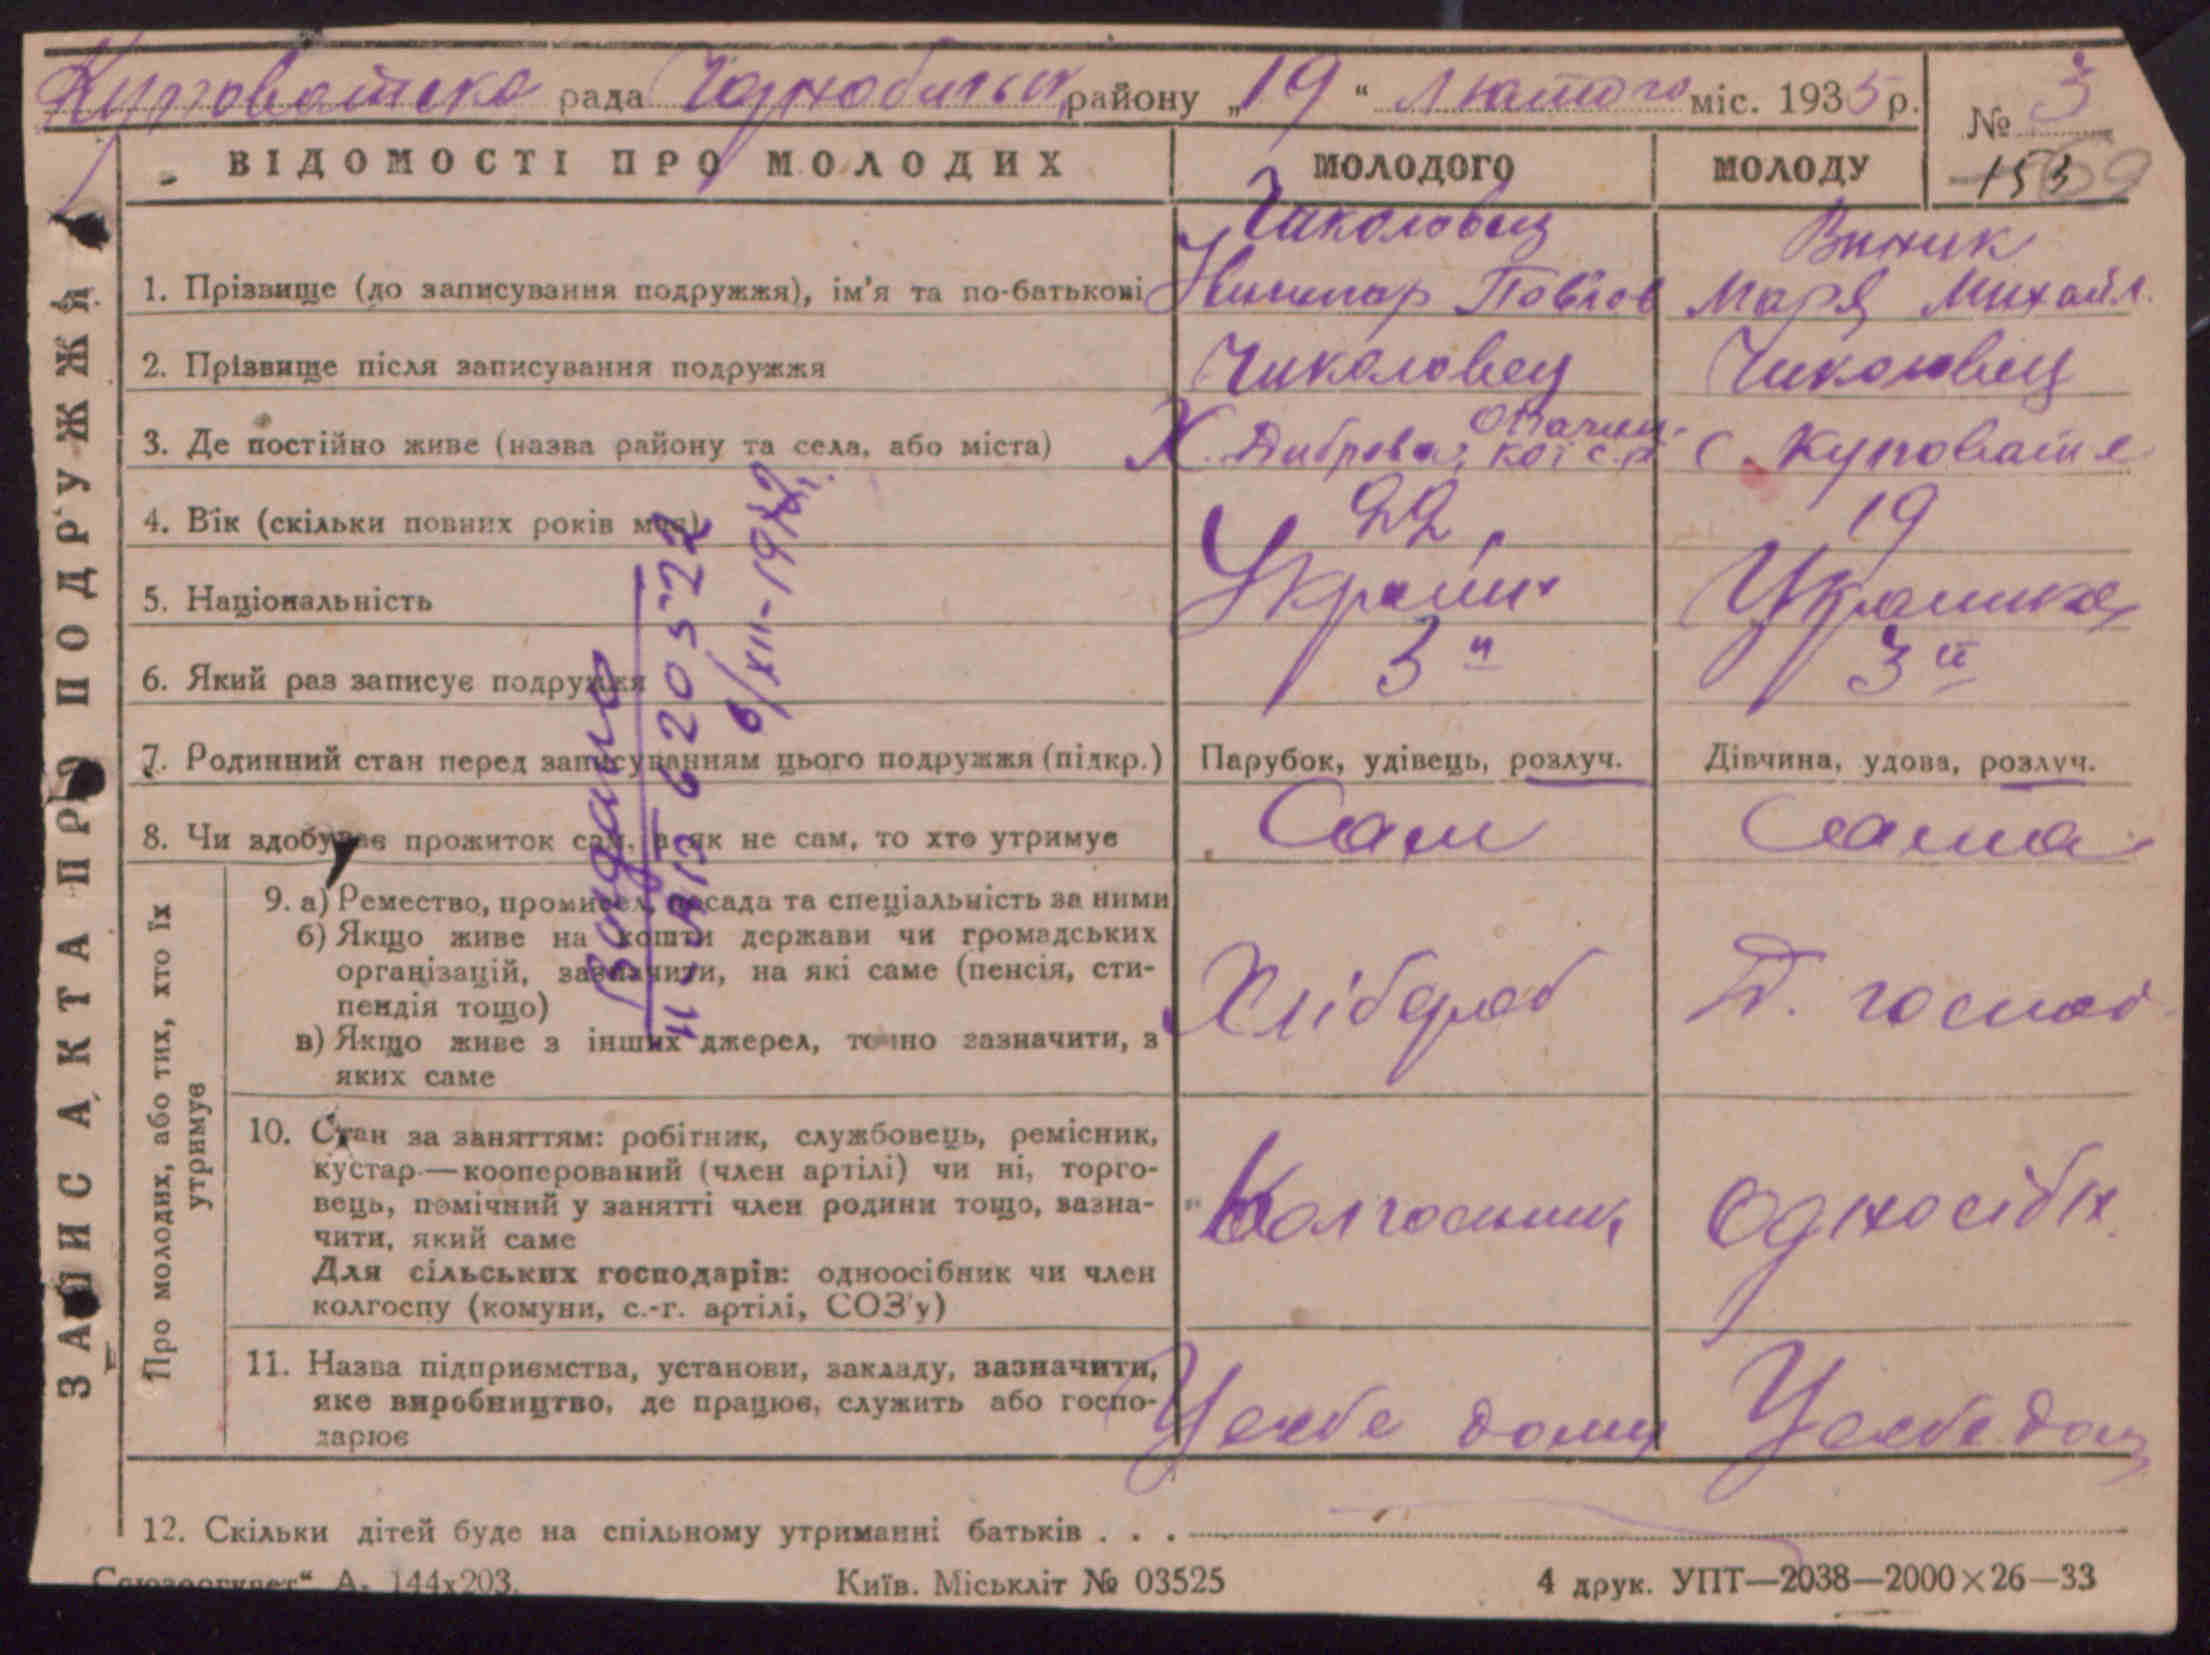 Куповатська рада Чорнобильськ району „19“ Лютого міс. 1935 р.
№ 3
153
69
ЗАПИС АКТА ПРО ПОДРУЖЖЯ
ВІДОМОСТІ ПРО МОЛОДИХ МОЛОДОГО МОЛОДУ
1. Прізвище (до записування подружжя), ім'я та по-батькові
Чиколовец
Павлов
Виник
Маря Михайл.
2. Прізвище після записування подружжя Чиколовец Чиколовец
3. Де постійно живе (назва району та села, або міста) Х. Диброва, кої с.р С. Куповате
4. Вік (скільки повних років має) 22 19
5. Національність Україн Украинка
6. Який раз записує подружжя 3 й 3 й
7. Родинний стан перед записуванням цього подружжя (підкр.) Парубок, удівець, розлуч. Дівчина, удова, розлуч.
8. Чи здобуває прожиток сам, а як не сам, то хто утримує Сам Сама
Про молодих, або тих, хто їх утримує
9. а) Ремество, промисел, посада та спеціальність за ними
б) Якщо живе на кошти держави чи громадських
організацій, зазначити, на які саме (пенсія, сти-
пендія тощо)
в) Якщо живе з інших джерел, точно зазначити, з
яких саме
Хлібороб Д. господ.
10. Стан за заняттям: робітник, службовець, ремісник,
кустар—кооперований (член артілі) чи ні, торго-
вець, помічний у занятті член родини тощо, зазна-
чити, який саме
Для сільських господарів: одноосібник чи член
колгоспу (комуни, с.-г. артілі, СОЗ'у)
Колгоспник Односібн.
11. Назва підприємства, установи, закладу, зазначити,
яке виробництво, де працює, служить або госпо-
дарює
У себе дома У себе дома
12. Скільки дітей буде на спільному утриманні батьків . . .
Видано
620522
6/XII-19
А. 144х203. Київ. Міськліт № 03525 4 друк. УПТ—2038—2000×26—33